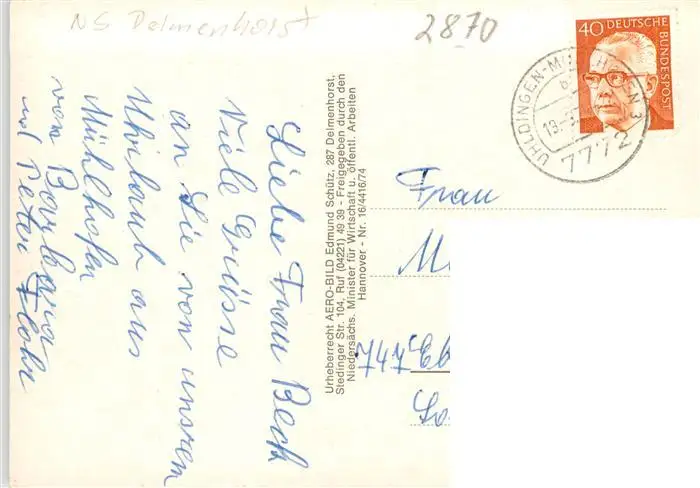 NS Delmenhorst
2870
40 DEUTSCHE
BUNDESPOST
UHLDINGEN-M
19.
7772
Liebe Frau Beck
Viele Grüsse
an Sie von unsrem
Urlaub aus
Mühlhofen
von Barbara
und Peter Flohr
Urheberrecht AERO-BILD Edmund Schütz, 287 Delmenhorst,
Stedinger Str. 104, Ruf (04221) 49 39 - Freigegeben durch den
Niedersächs. Minister für Wirtschaft u. öffentl. Arbeiten
Hannover - Nr. 16/4416/74
Frau
747 Eb